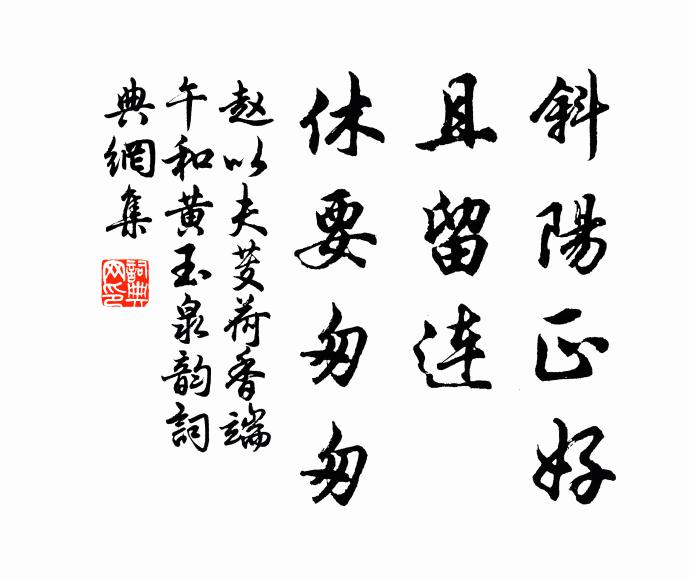 斜陽正好
且留連
休要匆匆
赵以夫芰荷香端
午和黄玉泉韵詞
典網集
詞典网印